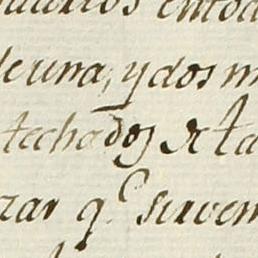 entod
de una, y dos m
techados de ta
zar q.e sirven